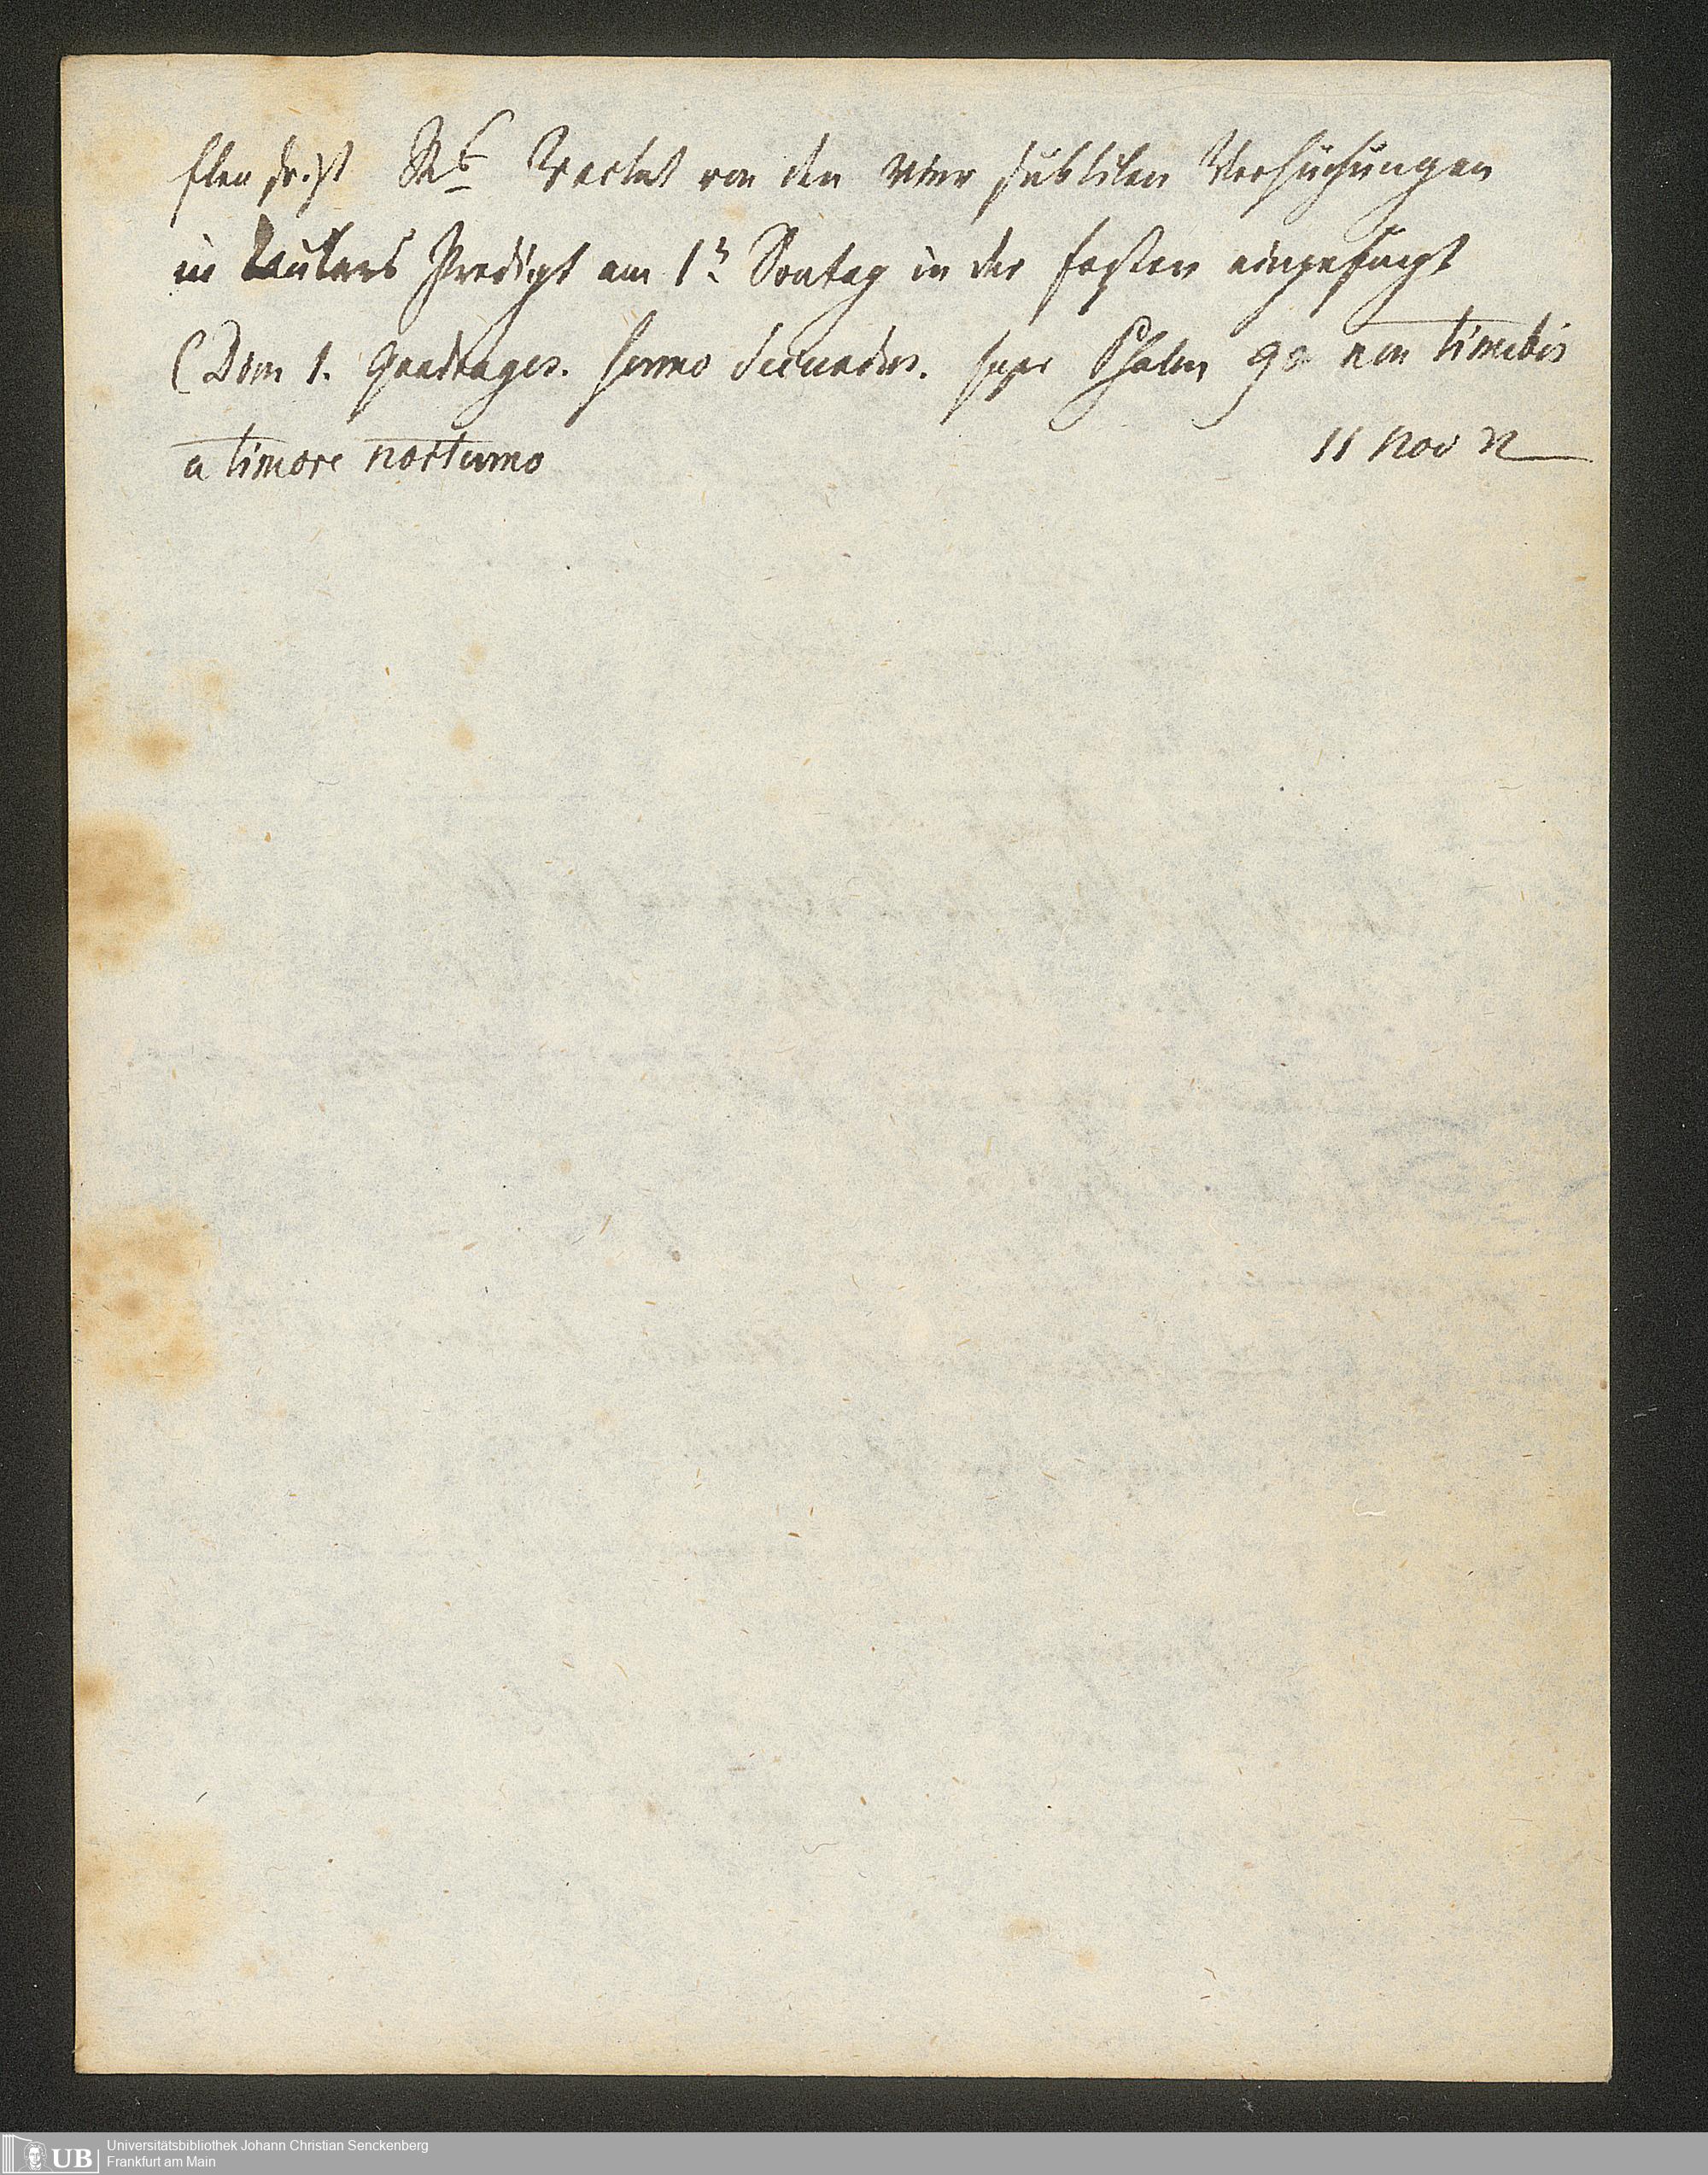 Rs Tractat von den vier subtilen Versuchungen
in Taulers Predigt am 1n Sontag in der fasten eingefügt
(Dom 1. Quadrages. sermo secundus. super Psalm 90 non timebis
a timore nocturno
11 Nov
Universitätsbibliothek Johann Christian Senckenberg
Frankfurt am Main
UB